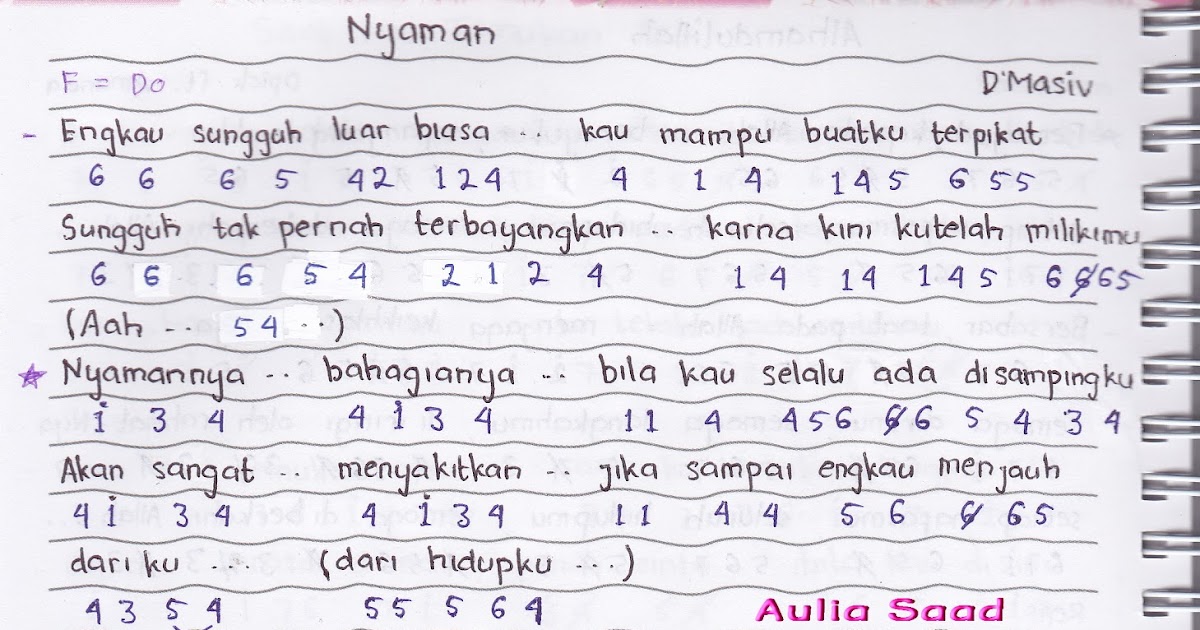 Nyaman
E = Do D'Masiv
- Engkau sungguh luar biasa ... kau mampu buatku terpikat
6 6 6 5 42 124 4 1 4 145 655
Sungguh tak pernah terbayangkan ... karna kini kutelah milikimu
6 6 6 5 4 2 1 2 4 14 14 145 6 6̸65
(Aah ... 54 ...)
★ Nyamannya ... bahagianya ... bila kau selalu ada disampingku
i 3 4 4 i 3 4 11 4 456 6̸6 5 4 3 4
Akan sangat ... menyakitkan jika sampai engkau menjauh
4 i 3 4 4 i 3 4 11 44 5 6 6̸ 65
dari ku ... (dari hidupku ...)
4 3 5 4 55 5 6 4
Aulia Saad